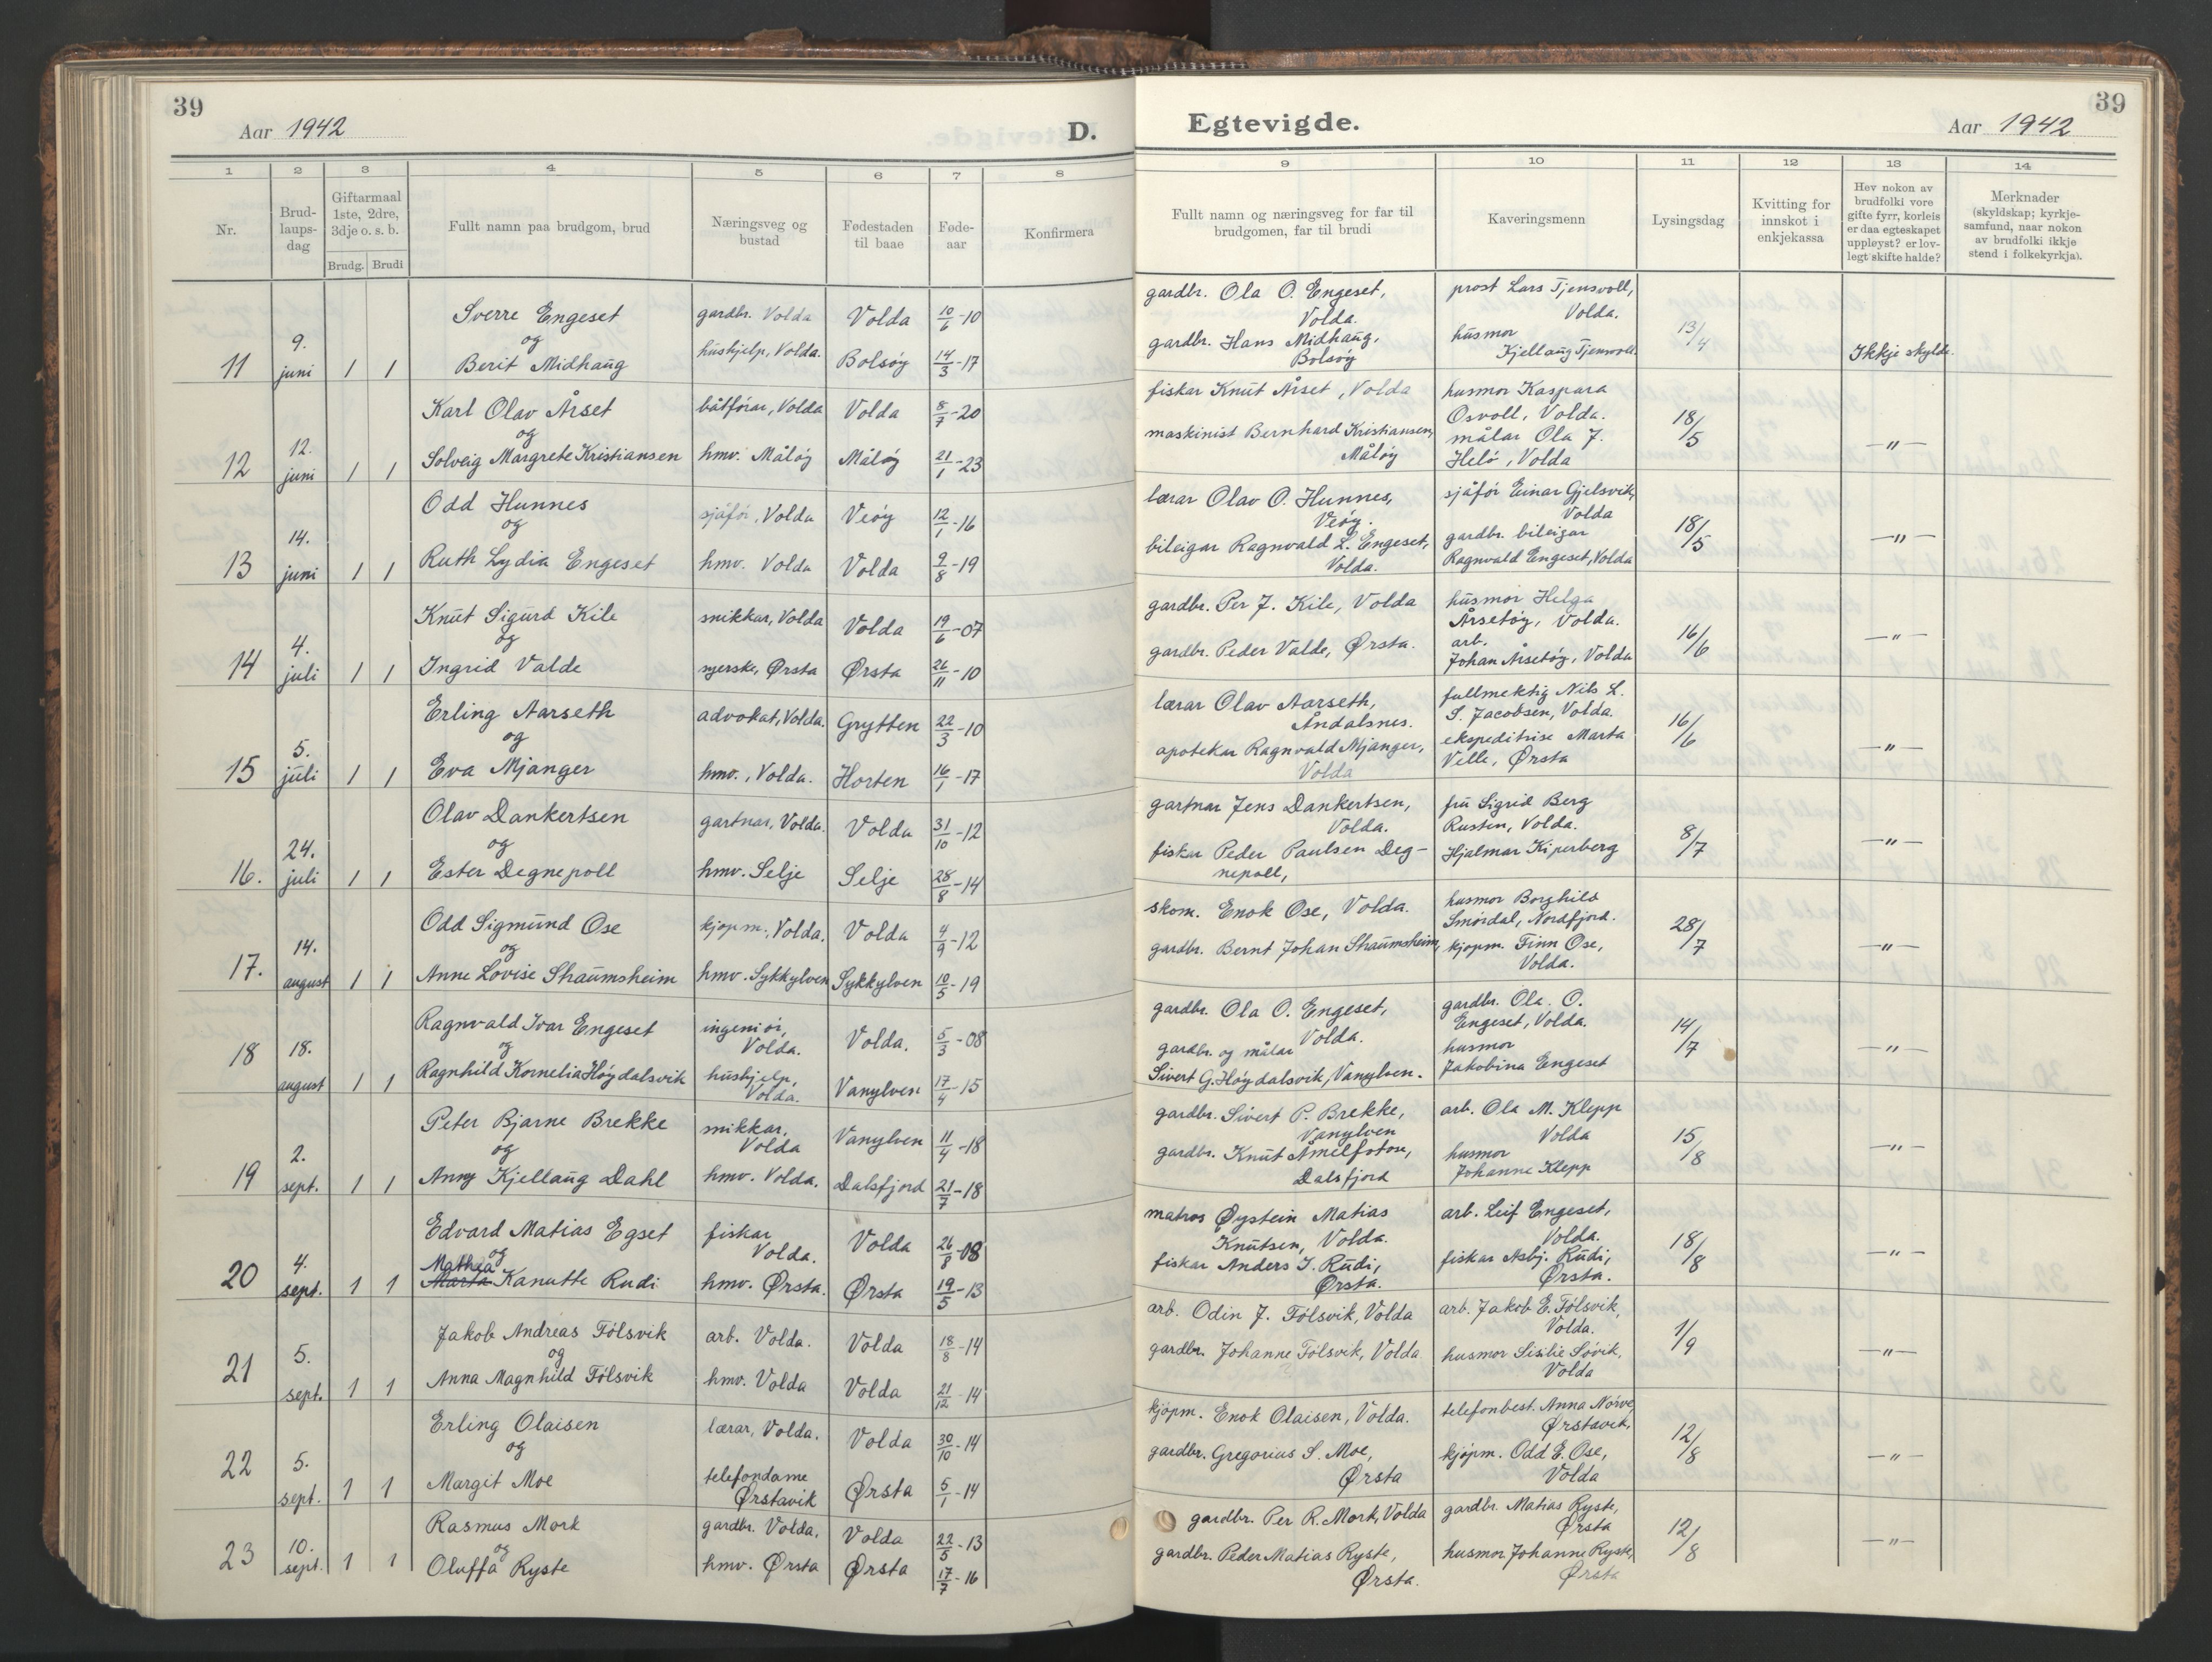 39
Aar 1942
D.
1
2
3
4
5
6
7
8
Nr.
Brud-
laups-
dag
Giftarmaal
1ste, 2dre,
3dje o. s. b.
Brudg. Brudi
Fullt namn paa brudgom, brud
Næringsveg og
bustad
Fødestaden
til baae
Føde-
aar
Konfirmera
11 9. juni 1 1
Sverre Engeset gardbr. Volda Volda 10/6-10
og
Berit Midhaug hushjelp, Volda. Bolsøy 14/3-17
12 12. juni 1 1
Karl Olav Årset båtførar, Volda Volda 8/7-20
og
Solveig Margrete Kristiansen hmv. Måløy Måløy 21/1-23
13 14. juni 1 1
Odd Hunnes sjåfør, Volda Veøy 12/1-16
og
Ruth Lydia Engeset hmv. Volda Volda 9/8-19
14 4. juli 1 1
Knut Sigurd Kile snikkar, Volda Volda 19/6-07
og
Ingrid Valde syerske, Ørsta Ørsta 26/11-10
15 5. juli 1 1
Erling Aarseth advokat, Volda. Grytten 22/3-10
og
Eva Mjanger hmv., Volda. Horten 16/1-17
16. 24. juli 1 1
Olav Dankertsen gartnar, Volda. Volda 31/10-12
og
Ester Degnepoll hmv. Selje Selje 28/8-14
17. 14. august 1 1
Odd Sigmund Ose kjøpm., Volda. Volda 4/9-12
og
Anne Lovise Straumsheim hmv. Sykkylven Sykkylven 10/5-19
18 18. august 1 1
Ragnvald Ivar Engeset ingeniør, Volda. Volda. 5/3-08
og
Ragnhild Kornelia Høydalsvik hushjelp, Volda. Vanylven 17/4-15
19 2. sept. 1 1
Peter Bjarne Brekke snikkar, Volda Vanylven 11/4-18
og
Anny Kjellaug Dahl hmv. Volda. Dalsfjord 21/7-18
20 4. sept. 1 1
Edvard Matias Egset fiskar Volda. Volda 26/8-08
og
Mathea
Marta Kanutte Rudi hmv. Ørsta. Ørsta 19/5-13
21 5. sept. 1 1
Jakob Andreas Følsvik arb. Volda. Volda 18/8-14
og
Anna Magnhild Følsvik hmv. Volda Volda 21/12-14
22 5. sept. 1 1
Erling Olaisen lærar, Volda. Volda 30/10-14
og
Margit Moe telefondame Ørstavik Ørsta 5/1-14
23 10. sept. 1 1
Rasmus Mork gardbr. Volda. Volda 22/5-13
og
Oluffa Ryste hmv. Ørsta Ørsta 17/7-16
39
Egtevigde.
Aar 1942
9
10
11
12
13
14
Fullt namn og næringsveg for far til
brudgomen, far til brudi
Kaveringsmenn
Lysingsdag
Kvitting for
innskot i
enkjekassa
Hev nokon av
brudfolki vore
gifte fyrr, korleis
er daa egteskapet
uppløyst? er lov-
legt skifte halde?
Merknader
(skyldskap; kyrkje-
samfund, naar nokon
av brudfolki ikkje
stend i folkekyrkja).
gardbr. Ola O. Engeset, prost Lars Tjensvoll,
Volda. Volda.
gardbr. Hans Midhaug, husmor 13/4
Bolsøy Kjellaug Tjensvoll. Ikkje skylde.
fiskar Knut Årset, Volda husmor Kaspara
Osvoll, Volda. 18/5
maskinist Bernhard Kristiansen, målar Ola J. —"—
Måløy Helø, Volda
lærar Olav O. Hunnes, sjåfør Einar Gjelsvik,
Veøy. Volda
bileigar Ragnvald L. Engeset, gardbr. bileigar 18/5 —"—
Volda. Ragnvald Engeset, Volda
gardbr. Per J. Kile, Volda husmor Helga
Årsetøy, Volda. 16/6 —"—
gardbr. Peder Valde, Ørsta. arb.
Johan Årsetøy, Volda
lærar Olav Aarseth, fullmektig Nils L.
Åndalsnes. S. Jacobsen, Volda. 16/6
apotekar Ragnvald Mjanger, ekspeditrise Marta —"—
Volda Velle, Ørsta
gartnar Jens Dankertsen, fru Sigrid Berg
Volda. Rusten, Volda. 8/7 —"—
fiskar Peder Paulsen Deg- Hjalmar Kiperberg
nepoll,
skom. Enok Ose, Volda. husmor Borghild
Smørdal, Nordfjord. 28/7
gardbr. Bernt Johan Straumsheim, kjøpm. Finn Ose, —"—
Volda.
gardbr. Ola O. Engeset, gardbr. Ola O.
Volda. Engeset, Volda. 14/7
gardbr. og målar husmor —"—
Sivert G. Høydalsvik, Vanylven. Jakobina Engeset
gardbr. Sivert P. Brekke, arb. Ola M. Klepp
Vanylven Volda 15/8
gardbr. Knut Åmelfotose, husmor —"—
Dalsfjord Johanne Klepp
matros Øystein Matias arb. Leif Engeset,
Knutsen, Volda. Volda. 18/8
fiskar Anders J. Rudi, fiskar Asbj. Rudi, —"—
Ørsta. Ørsta.
arb. Odin J. Følsvik, Volda arb. Jakob E. Følsvik,
Volda. 1/9
gardbr. Johanne Følsvik, Volda husmor Sisilie Søvik, —"—
Volda
kjøpm. Enok Olaisen, Volda. telefonbest. Anna Nørve
Ørstavik, 12/8
gardbr. Gregorius S. Moe, kjøpm. Odd E. Ose, —"—
Ørsta Volda
gardbr. Per R. Mork, Volda gardbr. Matias Ryste,
Ørsta 12/8
gardbr. Peder Matias Ryste, husmor Johanne Ryste, —"—
Ørsta. Ørsta